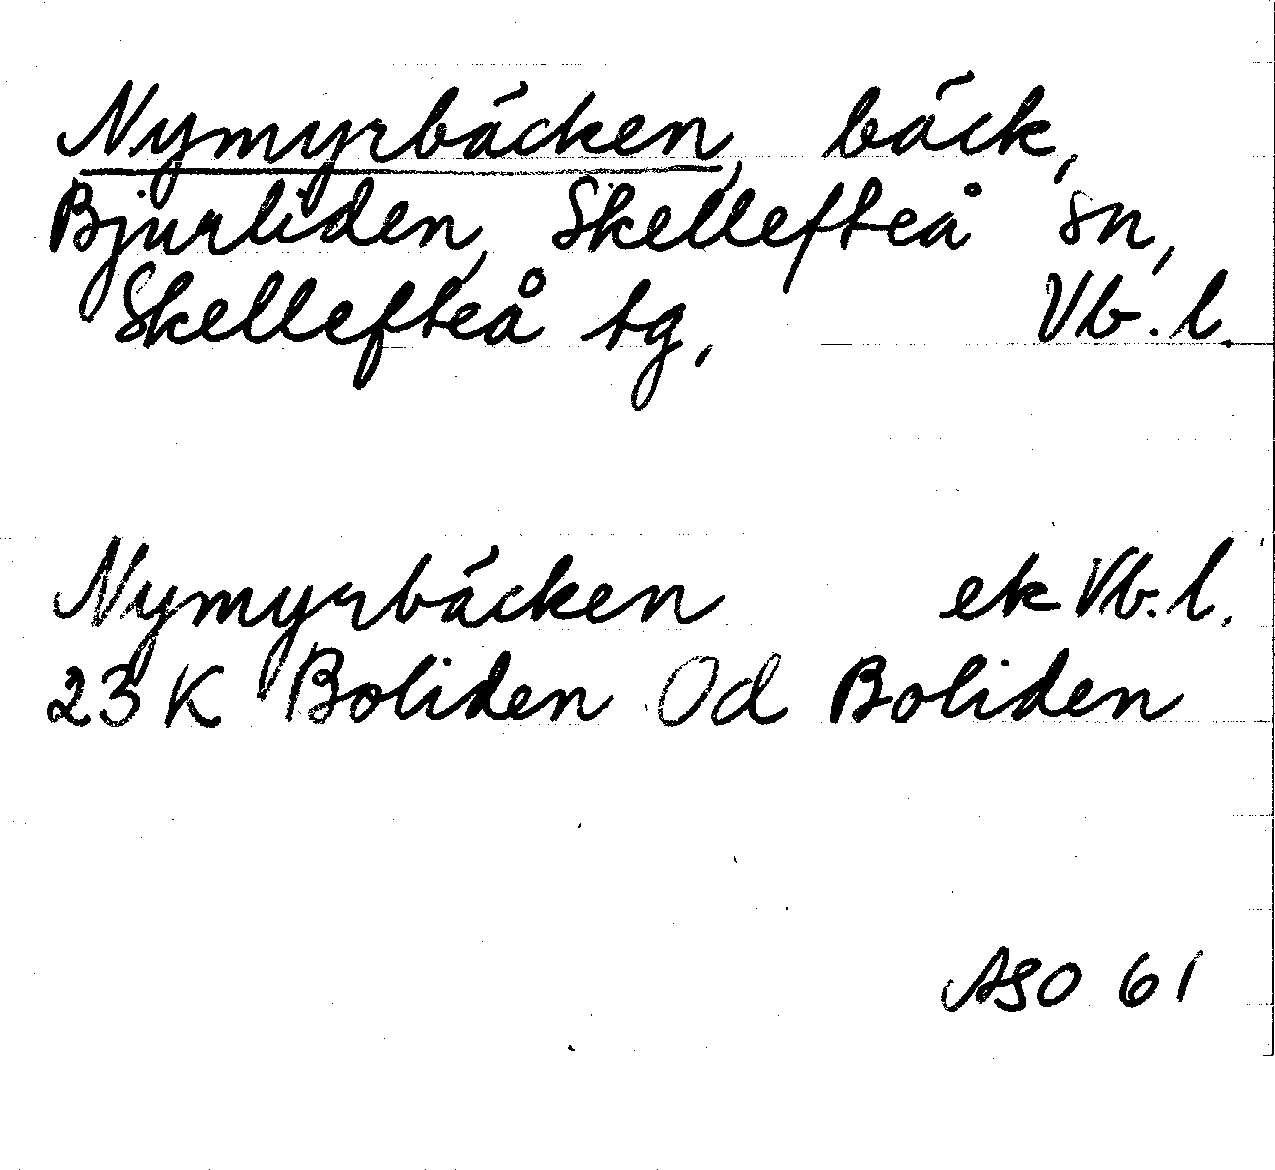 Nymyrbäcken, bäck,
Bjurliden, Skellefteå sn,
Skellefteå tg, Vb. l.
Nymyrbäcken ek Vb. l.
23 K Boliden Od Boliden
ASO 61